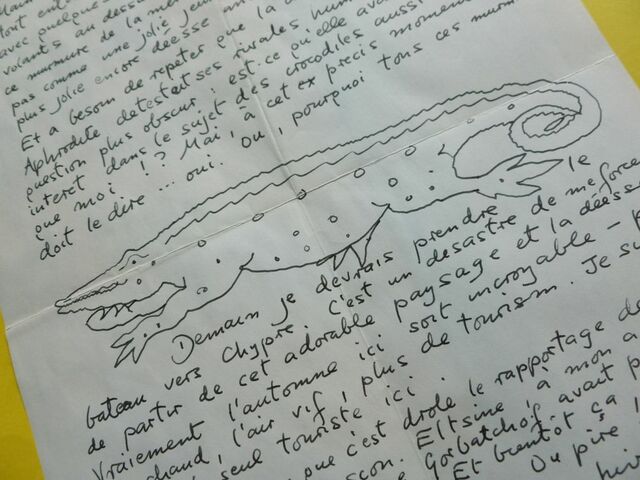 tout ent
avec quelque
volants au dessu
ce murmure de la me
pas comme une jolie jeun
plus jolie encore déesse an
Et a besoin de repeter que la
Aphrodite detestet ses rivales hum
question plus obscur : est-ce qu'elle ava
interet dans le sujet des crocodiles aussi
que moi !? Mai, à cet ex precis momen
doit le dire ... oui. Ou, pourquoi tous ces murm
Demain je devrais prendre le
bateau vers Chypre. C'est un desastre de me force
de partir de cet adorable paysage et la déesse
Vraiement l'automne ici soit incroyable – p
chaud, l'air vif, plus de tourism. Je su
seul touriste ici.
que c'est drole le rapportage de
Eltsine, à mon a
Gorbatchof avait p
Et bientot ça
Ou pire
hiv